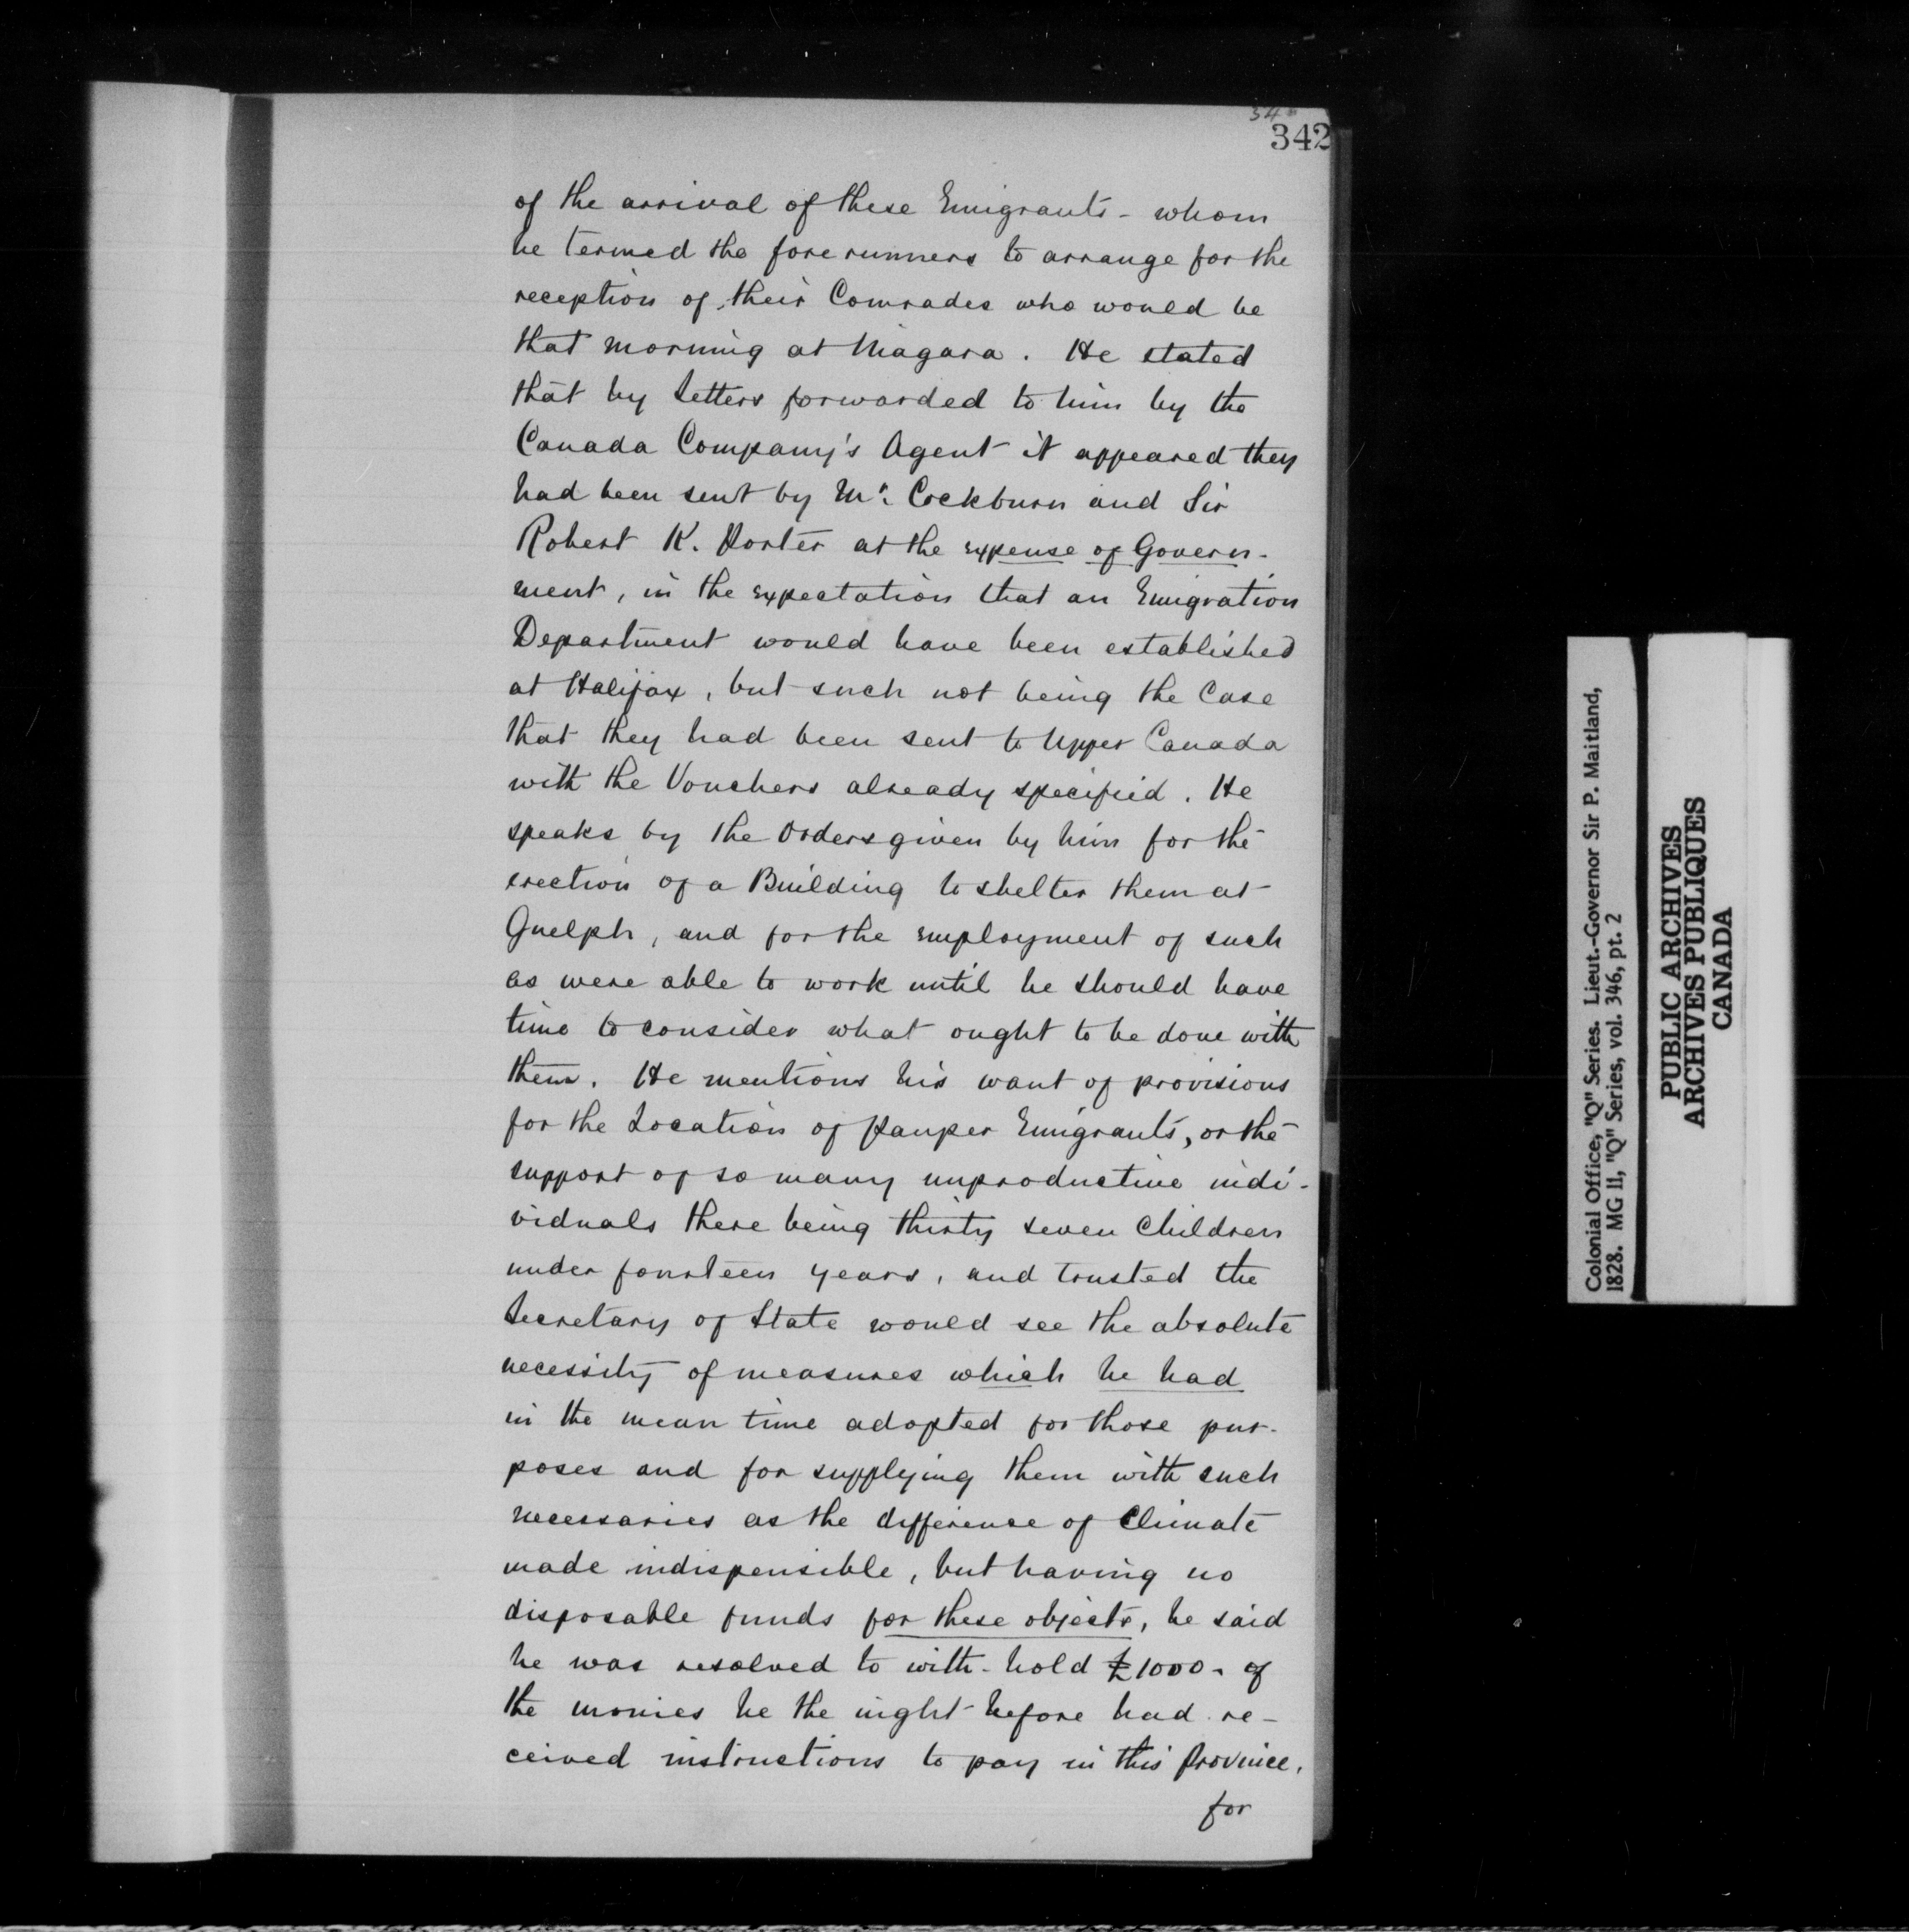 342
of the arrival of these Emigrants - whom
he termed the forerunners to arrange for the
reception of their Comrades who would be
that morning at Niagara. He stated
that by Letters forwarded to him by the
Canada Company's Agent it appeared they
had been sent by Mr. Cockburn and Sir
Robert K. Porter at the expense of Govern-
ment, in the expectation that an Emigration
Department would have been established
at Halifax, but such not being the Case
that they had been sent to Upper Canada
with the Vouchers already specified. He
speaks by the Orders given by him for the
erection of a Building to shelter them at
Guelph, and for the employment of such
as were able to work until he should have
time to consider what ought to be done with
them. He mentions his want of provisions
for the Location of Pauper Emigrants, or the
support of so many unproductive indi-
viduals there being thirty seven Children
under fourteen years, and trusted the
Secretary of State would see the absolute
necessity of measures which he had
in the mean time adopted for those pur-
poses and for supplying them with such
necessaries as the difference of Climate
made indispensible, but having no
disposable funds for these objects, he said
he was resolved to with-hold £1000- of
the monies he the night before had re-
ceived instructions to pay in this Province,
for
Colonial Office, "Q" Series. Lieut.-Governor Sir P. Maitland,
1828. MG 11, "Q" Series, vol. 346, pt. 2
PUBLIC ARCHIVES
ARCHIVES PUBLIQUES
CANADA